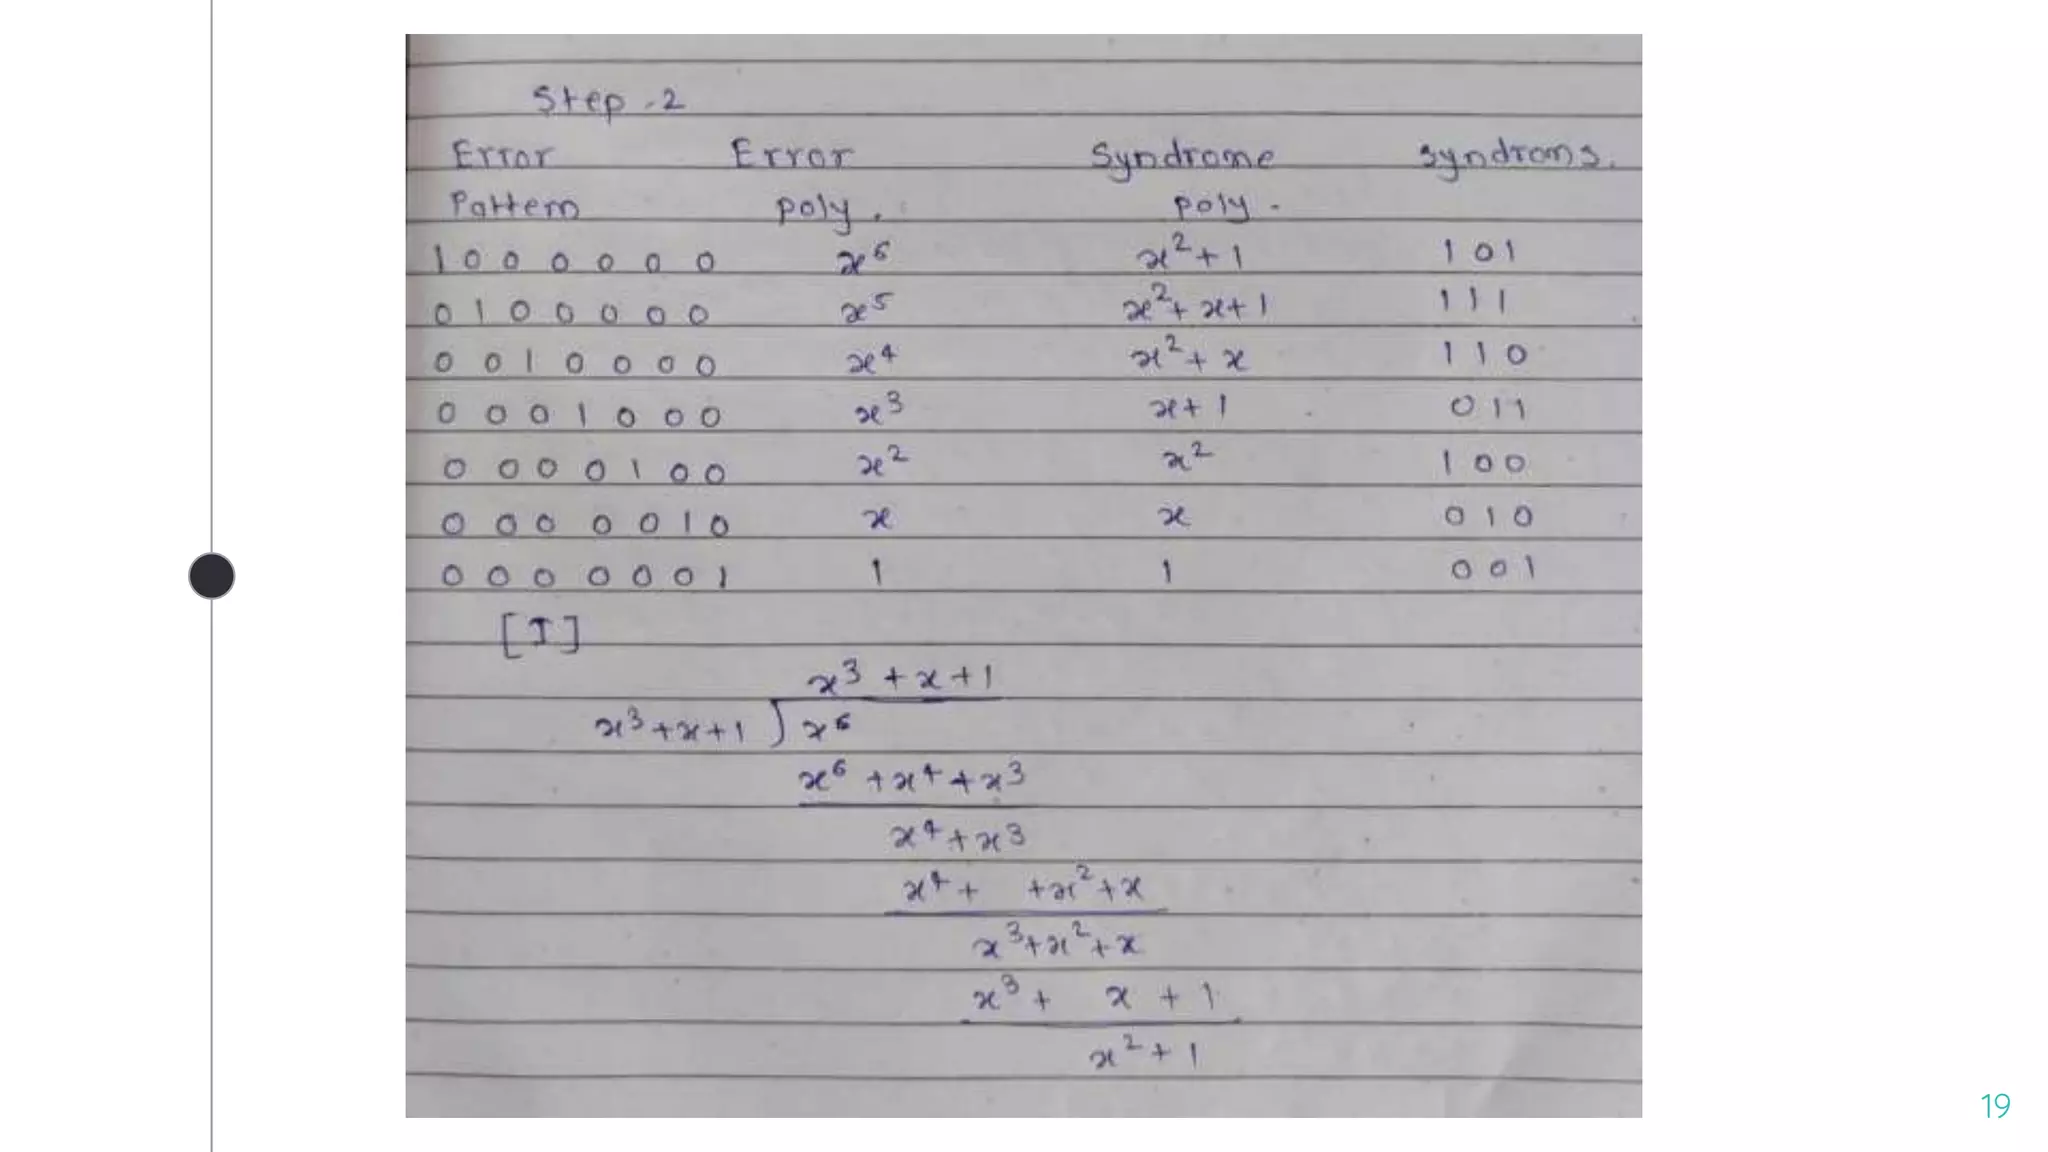 Step - 2
Error Error Syndrome syndroms.
Pattern poly. poly.
1 0 0 0 0 0 0 x⁶ x²+1 1 0 1
0 1 0 0 0 0 0 x⁵ x²+x+1 1 1 1
0 0 1 0 0 0 0 x⁴ x²+x 1 1 0
0 0 0 1 0 0 0 x³ x+1 0 1 1
0 0 0 0 1 0 0 x² x² 1 0 0
0 0 0 0 0 1 0 x x 0 1 0
0 0 0 0 0 0 1 1 1 0 0 1
[I]
x³ + x + 1
x³+x+1 ) x⁶
x⁶ + x⁴ + x³
x⁴ + x³
x⁴ + + x² + x
x³ + x² + x
x³ + x + 1
x² + 1
19